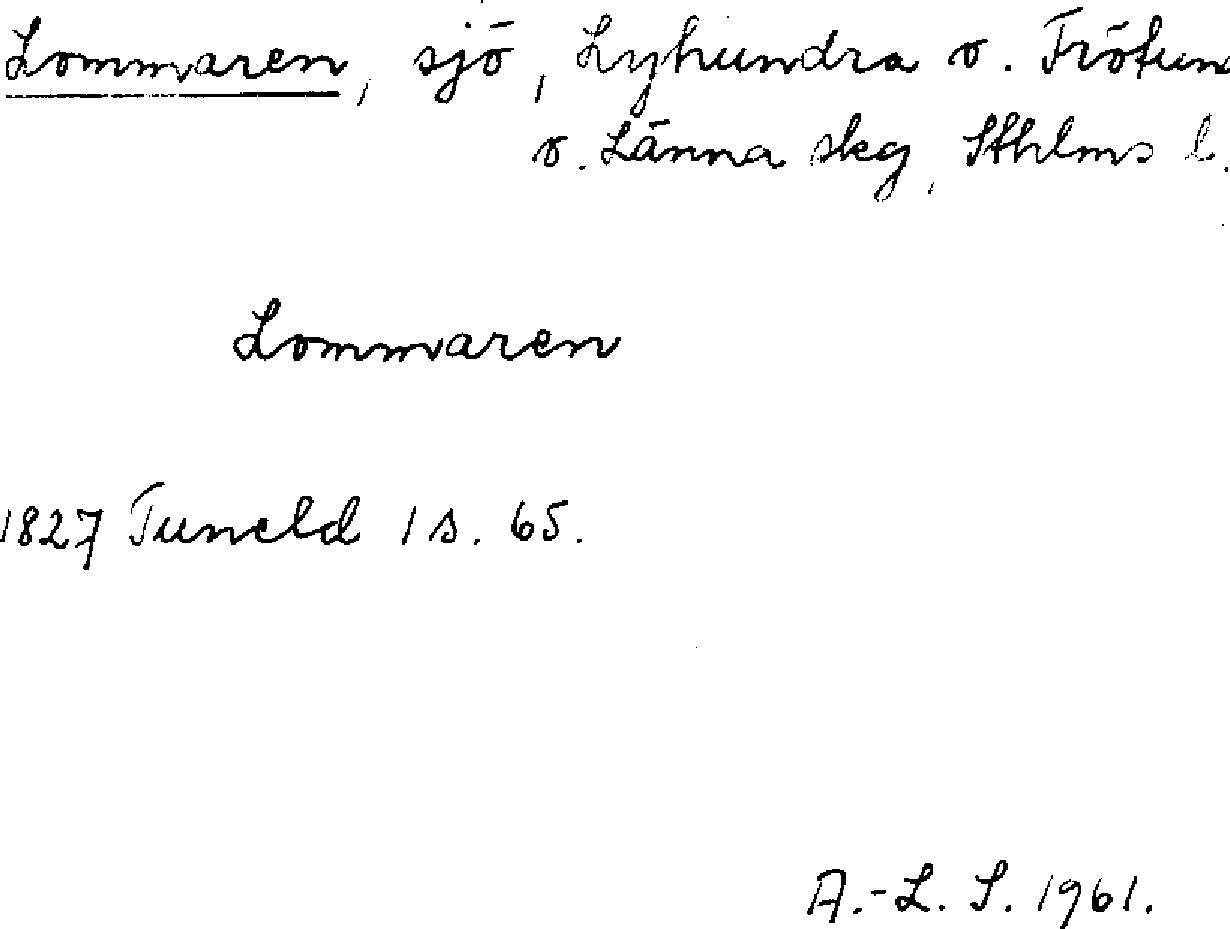 Lommaren, sjö, Lyhundra o. Frötun
o. Länna skg, Sthlms l.
Lommaren
1827 Tuneld 1 s. 65.
A.-L. S. 1961.